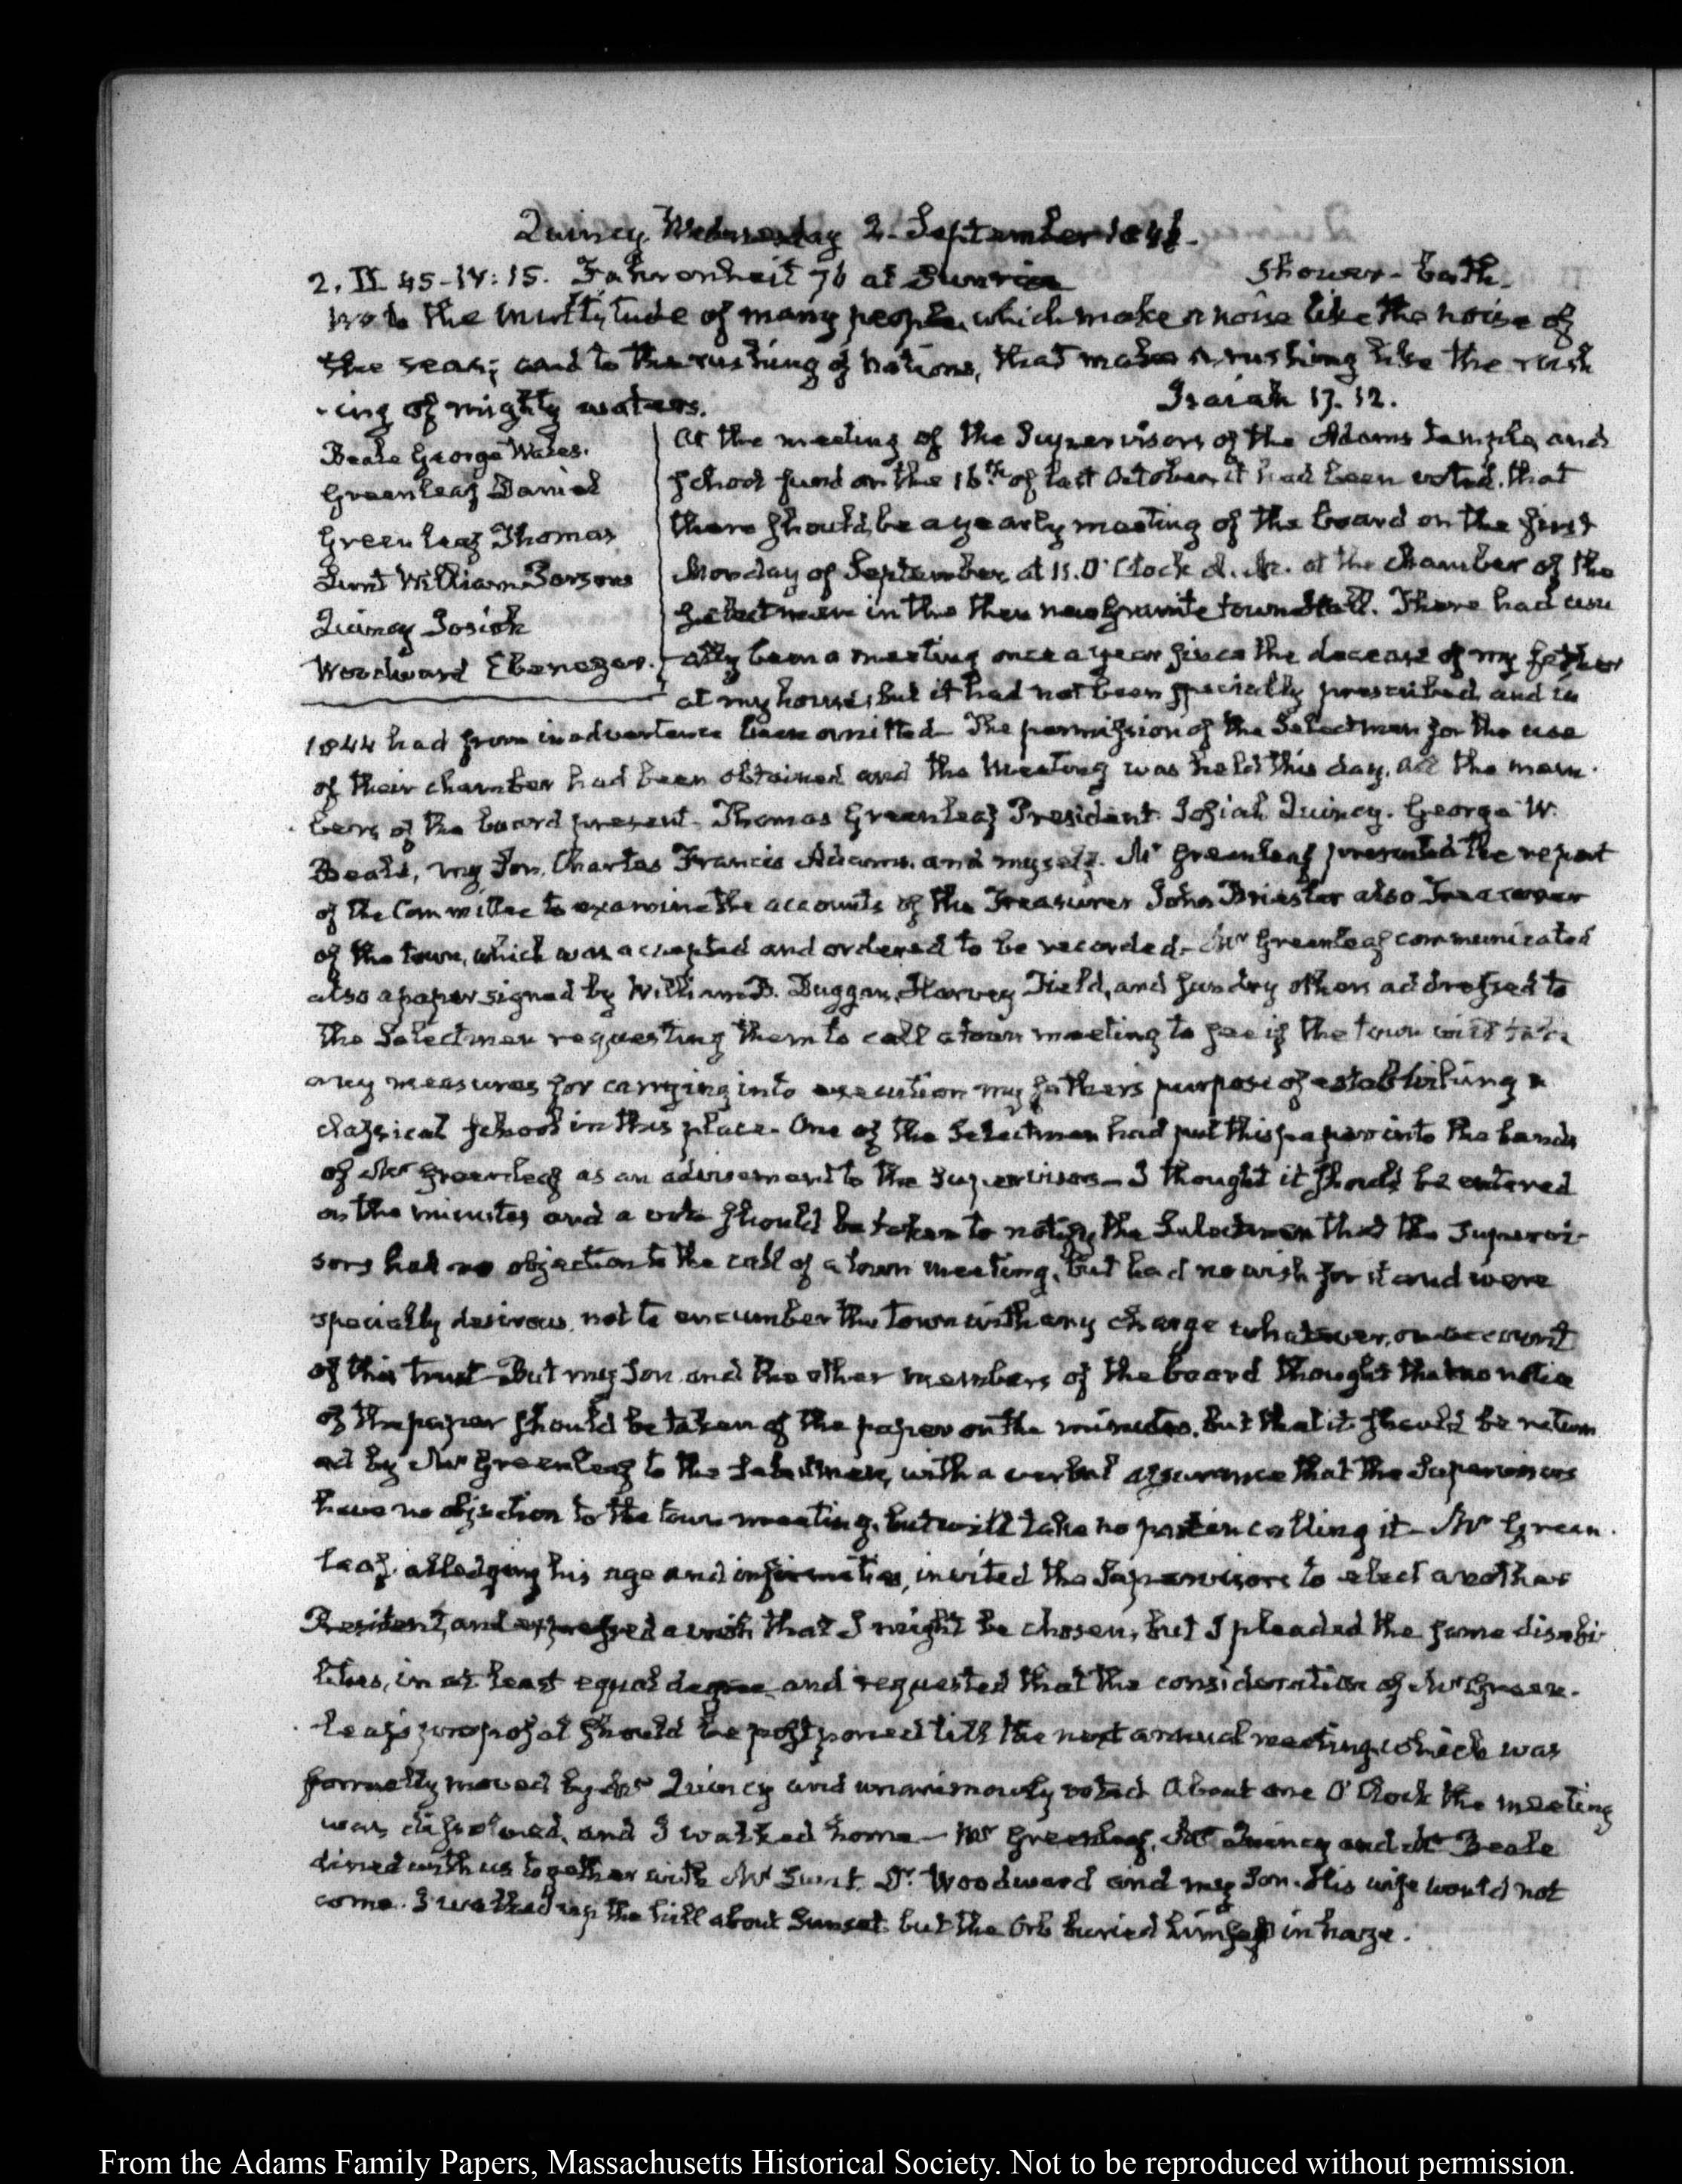 Quincy Wednesday 2. September 1846.
2. IV. 45–IV: 15. Fahrenheit 76 at Sunrise Shower-bath.
Wo to the multitude of many people, which make a noise like the noise of
the seas; and to the rushing of nations, that make a rushing like the rush
-ing of mighty waters. Isaiah 17. 12.
Beale George Wales.
Greenleaf Daniel
Greenleaf Thomas
Lunt William Parsons
Quincy Josiah
Woodward Ebenezer.
At the meeting of the Supervisors of the Adams temple and
school fund on the 16th of last October, it had been voted, that
there should be a yearly meeting of the board on the first
Monday of September, at 11. O'Clock A.M. at the chamber of the
Selectmen in the then new Granite town Hall. There had usu
ally been a meeting once a year since the decease of my father
at my house, but it had not been specially prescribed, and in
1844 had from inadvertence been omitted– The permission of the Selectmen for the use
of their chamber had been obtained and the meeting was held this day, all the mem-
bers of the board present– Thomas Greenleaf President. Josiah Quincy. George W.
Beale, my Son, Charles Francis Adams, and myself. Mr Greenleaf presented the report
of the Committee to examine the accounts of the Treasurer John Briesler also Treasurer
of the town, which was accepted and ordered to be recorded– Mr Greenleaf communicated
also a paper signed by William B. Duggan, Harvey Field, and sundry others addressed to
the Selectmen requesting them to call a town meeting to see if the town will take
any measures for carrying into execution my father's purpose of establishing a
classical school in this place– One of the Selectmen had put this paper into the hands
of Mr Greenleaf as an advisement to the Supervisors– I thought it should be entered
on the minutes and a vote should be taken to notify the Selectmen that the Supervi-
sors had no objection to the call of a town meeting, but had no wish for it and were
specially desirous not to encumber the town with any charge whatever, on account
of this trust– But my Son and the other members of the board thought that no notice
of the paper should be taken of the paper on the minutes. but that it should be return
ed by Mr Greenleaf to the Selectmen, with a verbal assurance that the Supervisors
have no objection to the town meeting, but will take no part in calling it– Mr Green-
leaf, alledging his age and infirmities, invited the Supervisors to elect another
President, and expressed a wish that I might be chosen, but I pleaded the same disabi-
lities, in at least equal degree and requested that the consideration of Mr Green-
leaf's proposal should be postponed till the next annual meeting, which was
formally moved by Mr Quincy and unanimously voted About one O'Clock the meeting
was dissolved, and I walked home– Mr Greenleaf, Mr Quincy and Mr Beale
dined with us together with Mr Lunt. Dr. Woodward and my Son. His wife would not
come. I walked up the hill about Sunset but the Orb buried himself in haze.
From the Adams Family Papers, Massachusetts Historical Society. Not to be reproduced without permission.